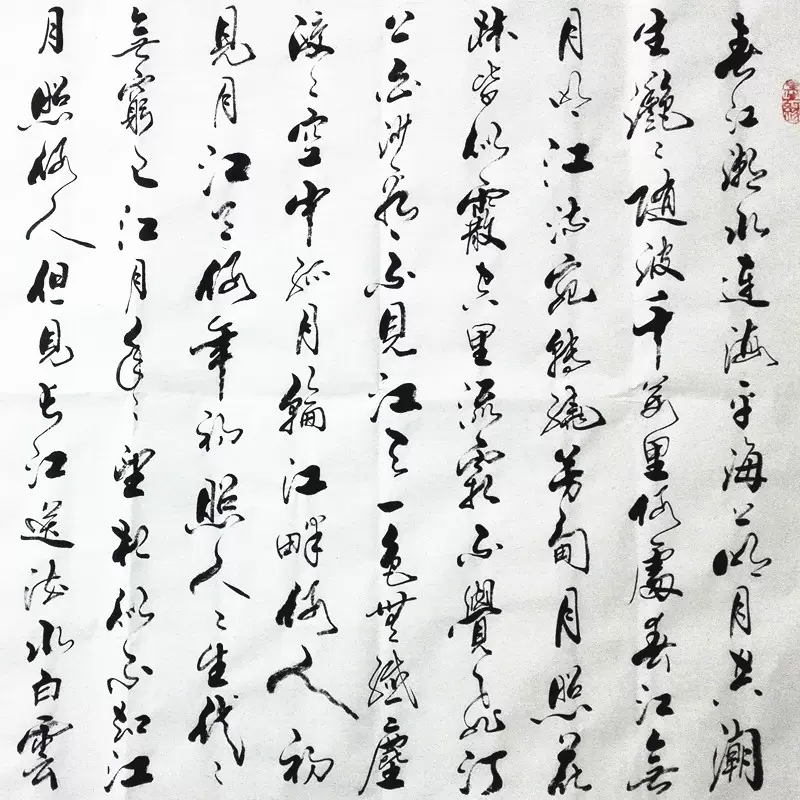 春江潮水連海平海上明月共潮
生灧〻随波千萬里何處春江無
月明江流宛轉繞芳甸月照花
林皆似霰空里流霜不覺飛汀
上白沙看〻不見江天一色無纖塵
皎〻空中孤月輪江畔何人初
見月江天何年初照人〻生代〻
無窮已江月年〻望相似不知江
月照何人但見長江送流水白雲